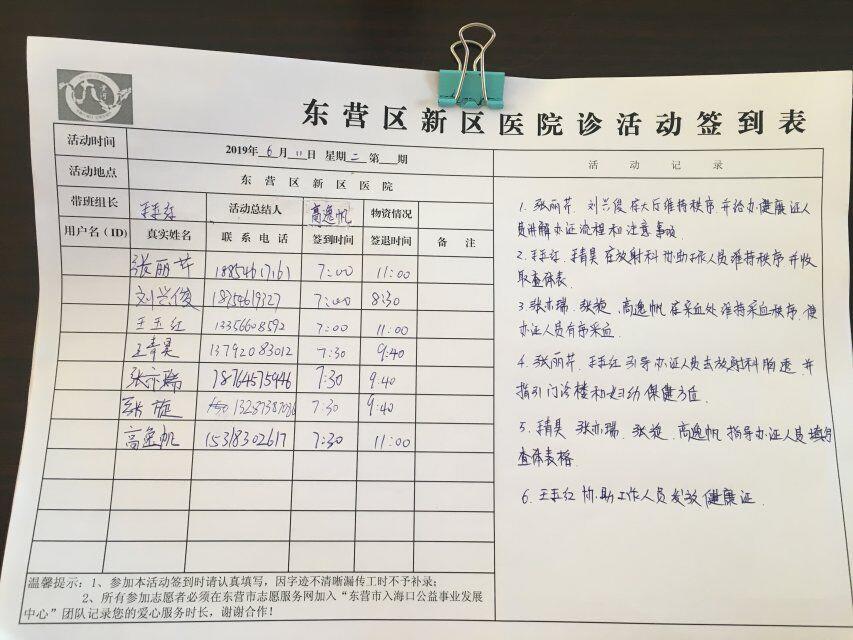 东营区新区医院诊活动签到表
活动时间 2019年6月11日 星期二 第 期
活动地点 东营区新区医院
带班组长 王玉红 活动总结人 高逸帆 物资情况
用户名（ID） 真实姓名 联系电话 签到时间 签退时间 备注
张丽芹 18854617161 7:00 11:00
刘兴俊 18254619327 7:00 8:30
王玉红 13356608592 7:00 11:00
王青昊 13792083012 7:30 9:40
张亦瑞 18764575446 7:30 9:40
张旋 13287387036 7:30 9:40
高逸帆 15318302617 7:30 11:00
温馨提示：1、参加本活动签到时请认真填写，因字迹不清晰漏传工时不予补录；
2、所有参加志愿者必须在东营市志愿服务网加入“东营市入海口公益事业发展
中心”团队记录您的爱心服务时长，谢谢合作！
活动记录
1. 张丽芹 刘兴俊在大厅维持秩序，并给办健康证人
员讲解办证流程和注意事项
2. 王玉红、王青昊在放射科协助工作人员维持秩序并收
取查体表.
3. 张亦瑞、张旋、高逸帆在采血处维持采血秩序，使
办证人员有序采血.
4. 张丽芹、王玉红引导办证人员去放射科胸透，并
指引门诊楼和妇幼保健方位.
5. 王青昊 张亦瑞、张旋、高逸帆指导办证人员填写
查体表格.
6. 王玉红协助工作人员发放健康证.